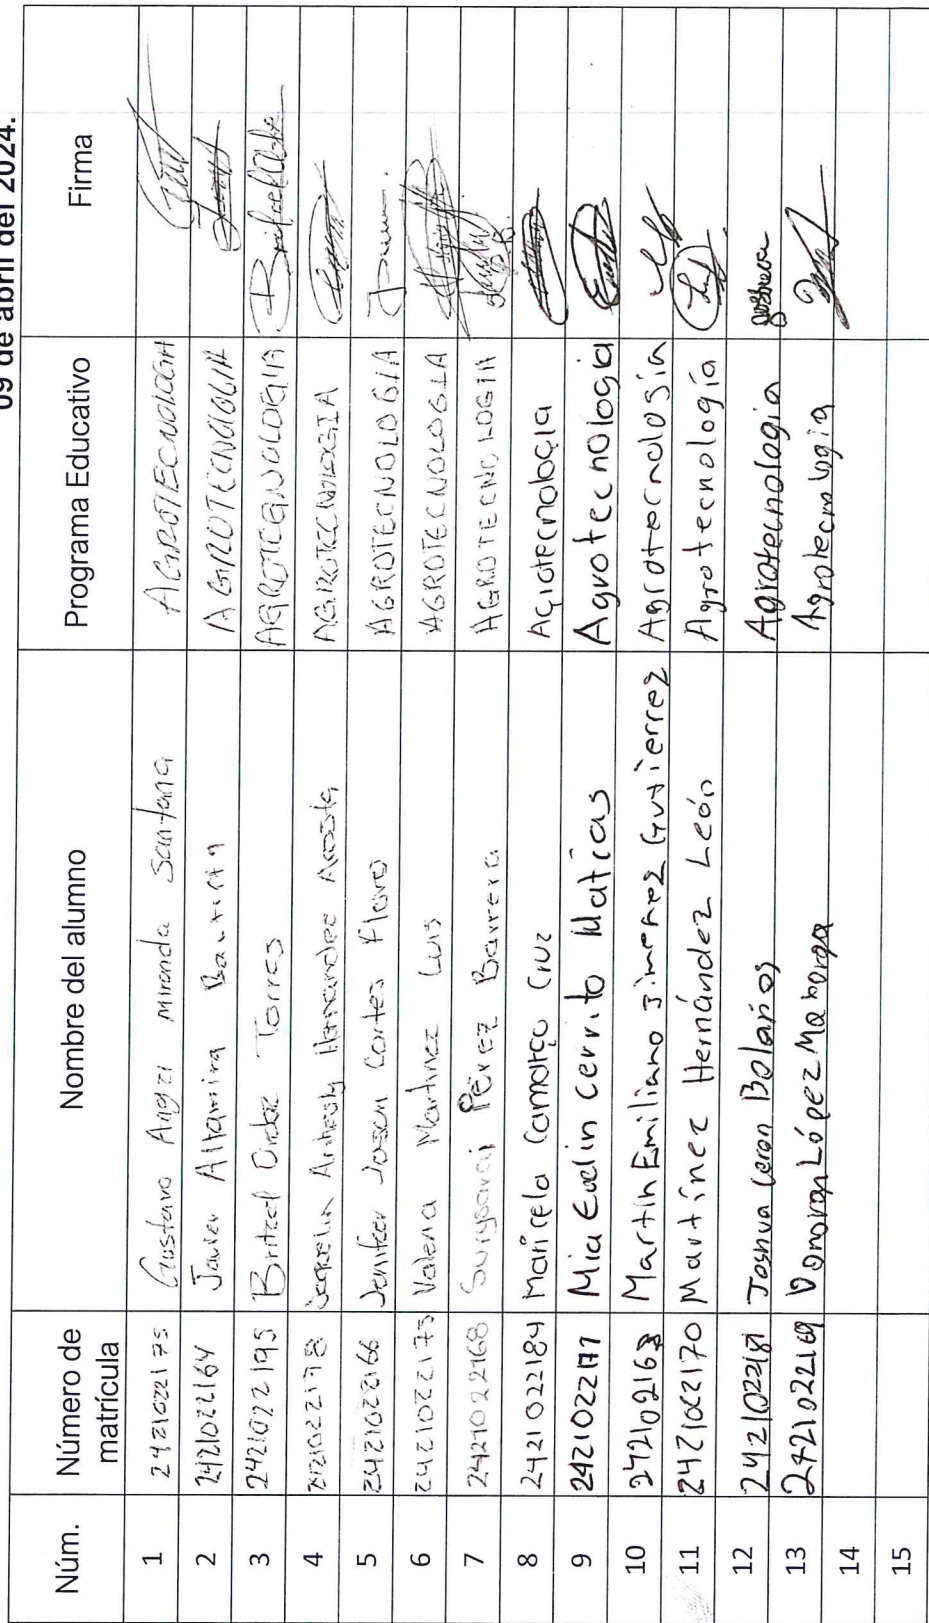 09 de abril del 2024.
Núm. Número de matrícula Nombre del alumno Programa Educativo Firma
1 2421022175 Gustavo Angel Miranda Santana AGROTECNOLOGIA
2 2421022164 Javier Altamira Bautista AGROTECNOLOGIA
3 2421022195 Britzel Ordaz Torres AGROTECNOLOGIA
4 2421022178 Hernandez Acosta AGROTECNOLOGIA
5 2421022166 Jenifeer Joscin Cortes Flores AGROTECNOLOGIA
6 2421022173 Valeria Martinez Luis AGROTECNOLOGIA
7 2421022168 Surysarai Pérez Barrera AGROTECNOLOGIA
8 2421022184 Maricela Camargo Cruz Agrotecnologia
9 2421022177 Mia Evelin cerrito Matias Agrotecnologia
10 242102163 Martin Emiliano Jimenez Gutierrez Agrotecnología
11 2421022170 Martínez Hernández León Agrotecnología
12 2421022181 Joshua Ceron Bolaños Agrotecnologia Joshua
13 2421022169 Donovan López Agrotecnologia
14
15